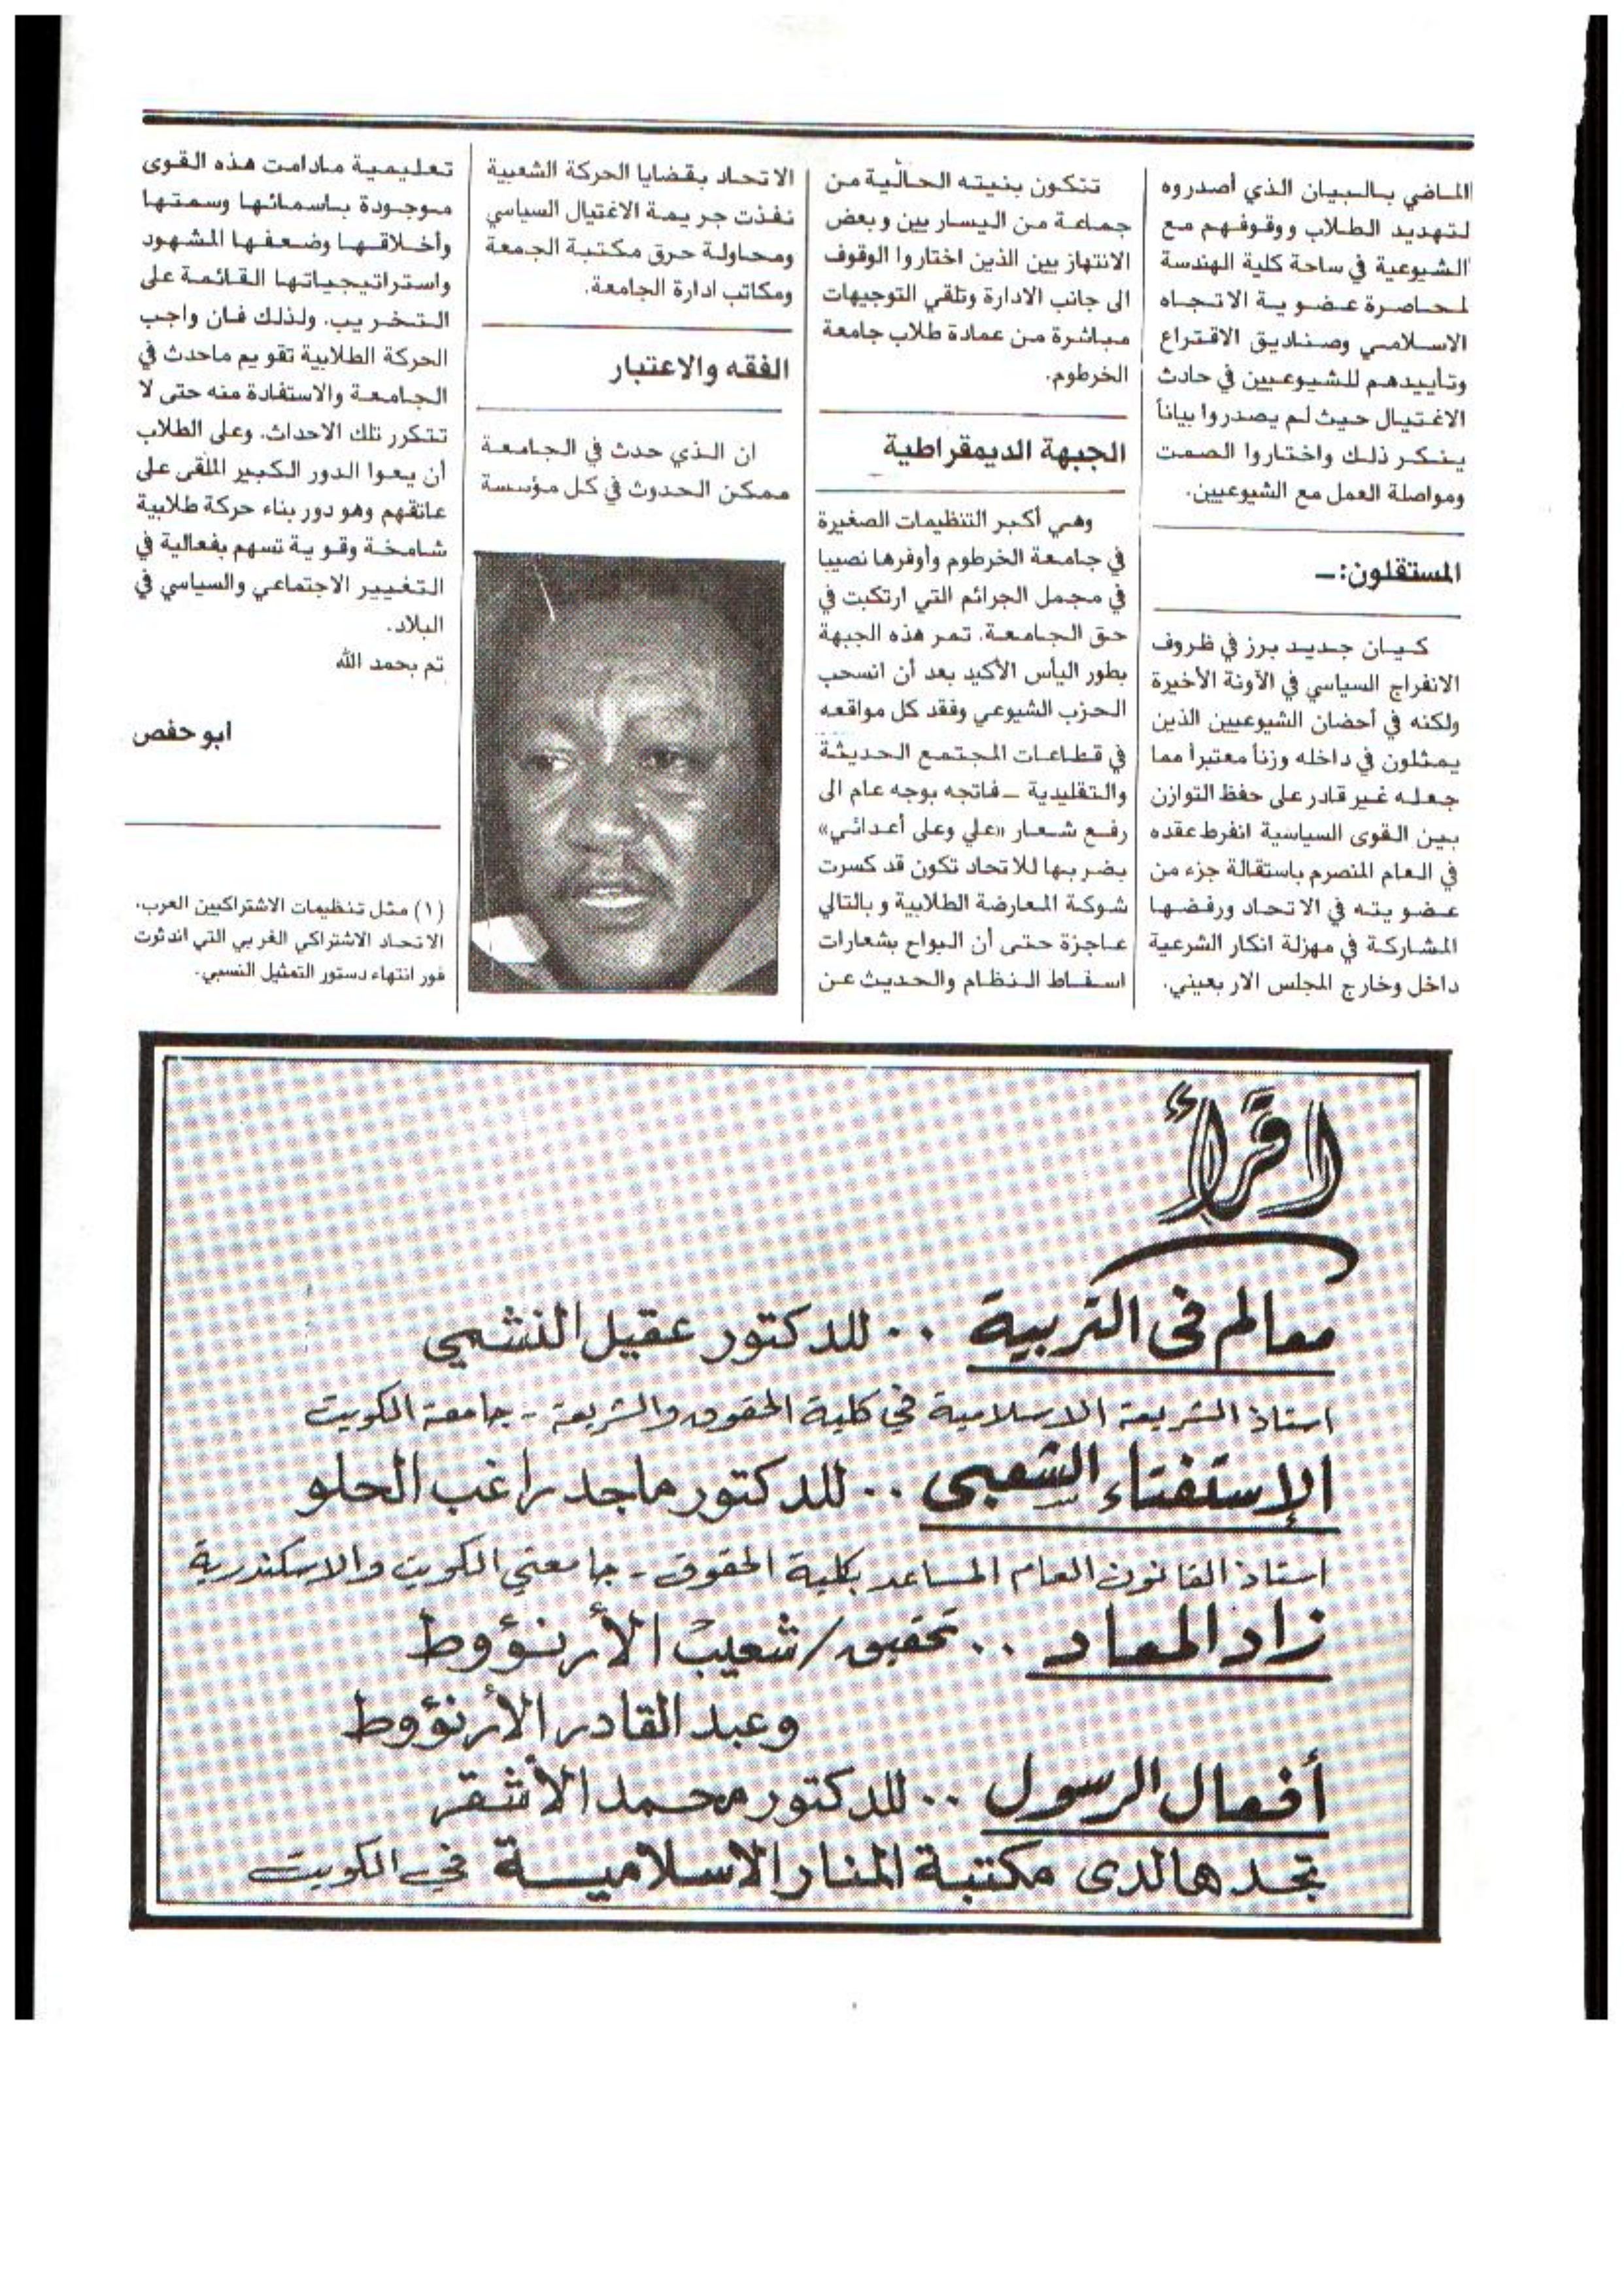 الماضي بالبيان الذي أصدروه
لتهديد الطلاب ووقوفهم مع
الشيوعية في ساحة كلية الهندسة
لمحاصرة عضوية الاتجاه
الاسلامي وصناديق الاقتراع
وتأييدهم للشيوعيين في حادث
الاغتيال حيث لم يصدروا بياناً
ينكر ذلك واختاروا الصمت
ومواصلة العمل مع الشيوعيين.
المستقلون:ــ
كيان جديد برز في ظروف
الانفراج السياسي في الآونة الأخيرة
ولكنه في أحضان الشيوعيين الذين
يمثلون في داخله وزناً معتبراً مما
جعله غير قادر على حفظ التوازن
بين القوى السياسية انفرط عقده
في العام المنصرم باستقالة جزء من
عضويته في الاتحاد ورفضها
المشاركة في مهزلة انكار الشرعية
داخل وخارج المجلس الاربعيني.
تتكون بنيته الحالية من
جماعة من اليساريين وبعض
الانتهازيين الذين اختاروا الوقوف
الى جانب الادارة وتلقي التوجيهات
مباشرة من عمادة طلاب جامعة
الخرطوم.
الجبهة الديمقراطية
وهي أكبر التنظيمات الصغيرة
في جامعة الخرطوم وأوفرها نصيبا
في مجمل الجرائم التي ارتكبت في
حق الجامعة. تمر هذه الجبهة
بطور اليأس الأكيد بعد أن انسحب
الحزب الشيوعي وفقد كل مواقعه
في قطاعات المجتمع الحديثة
والتقليدية ــ فاتجه بوجه عام الى
رفع شعار «علي وعلى أعدائي»
بضربها للاتحاد تكون قد كسرت
شوكة المعارضة الطلابية وبالتالي
عاجزة حتى أن البواح بشعارات
اسقاط النظام والحديث عن
الاتحاد بقضايا الحركة الشعبية
نفذت جريمة الاغتيال السياسي
ومحاولة حرق مكتبة الجمعة
ومكاتب ادارة الجامعة.
الفقه والاعتبار
ان الذي حدث في الجامعة
ممكن الحدوث في كل مؤسسة
تعليمية مادامت هذه القوى
موجودة باسمائها وسمتها
وأخلاقها وضعفها المشهود
واستراتيجياتها القائمة على
التخريب. ولذلك فان واجب
الحركة الطلابية تقويم ماحدث في
الجامعة والاستفادة منه حتى لا
تتكرر تلك الاحداث. وعلى الطلاب
أن يعوا الدور الكبير الملقى على
عاتقهم وهو دور بناء حركة طلابية
شامخة وقوية تسهم بفعالية في
التغيير الاجتماعي والسياسي في
البلاد.
تم بحمد الله
ابو حفص
(١) مثل تنظيمات الاشتراكيين العرب،
الاتحاد الاشتراكي الغربي التي اندثرت
فور انتهاء دستور التمثيل النسبي.
اقرأ
معالم في التربية .. للدكتور عقيل النشمي
استاذ الشريعة الاسلامية في كلية الحقوق والشريعة - جامعة الكويت
الإستفتاء الشعبي .. للدكتور ماجد راغب الحلو
استاذ القانون العام المساعد بكلية الحقوق - جامعتي الكويت والاسكندرية
زاد المعاد .. تحقيق / شعيب الأرنؤوط
وعبد القادر الأرنؤوط
أفعال الرسول .. للدكتور محمد الأشقر
تجدها لدى مكتبة المنار الاسلامية في الكويت